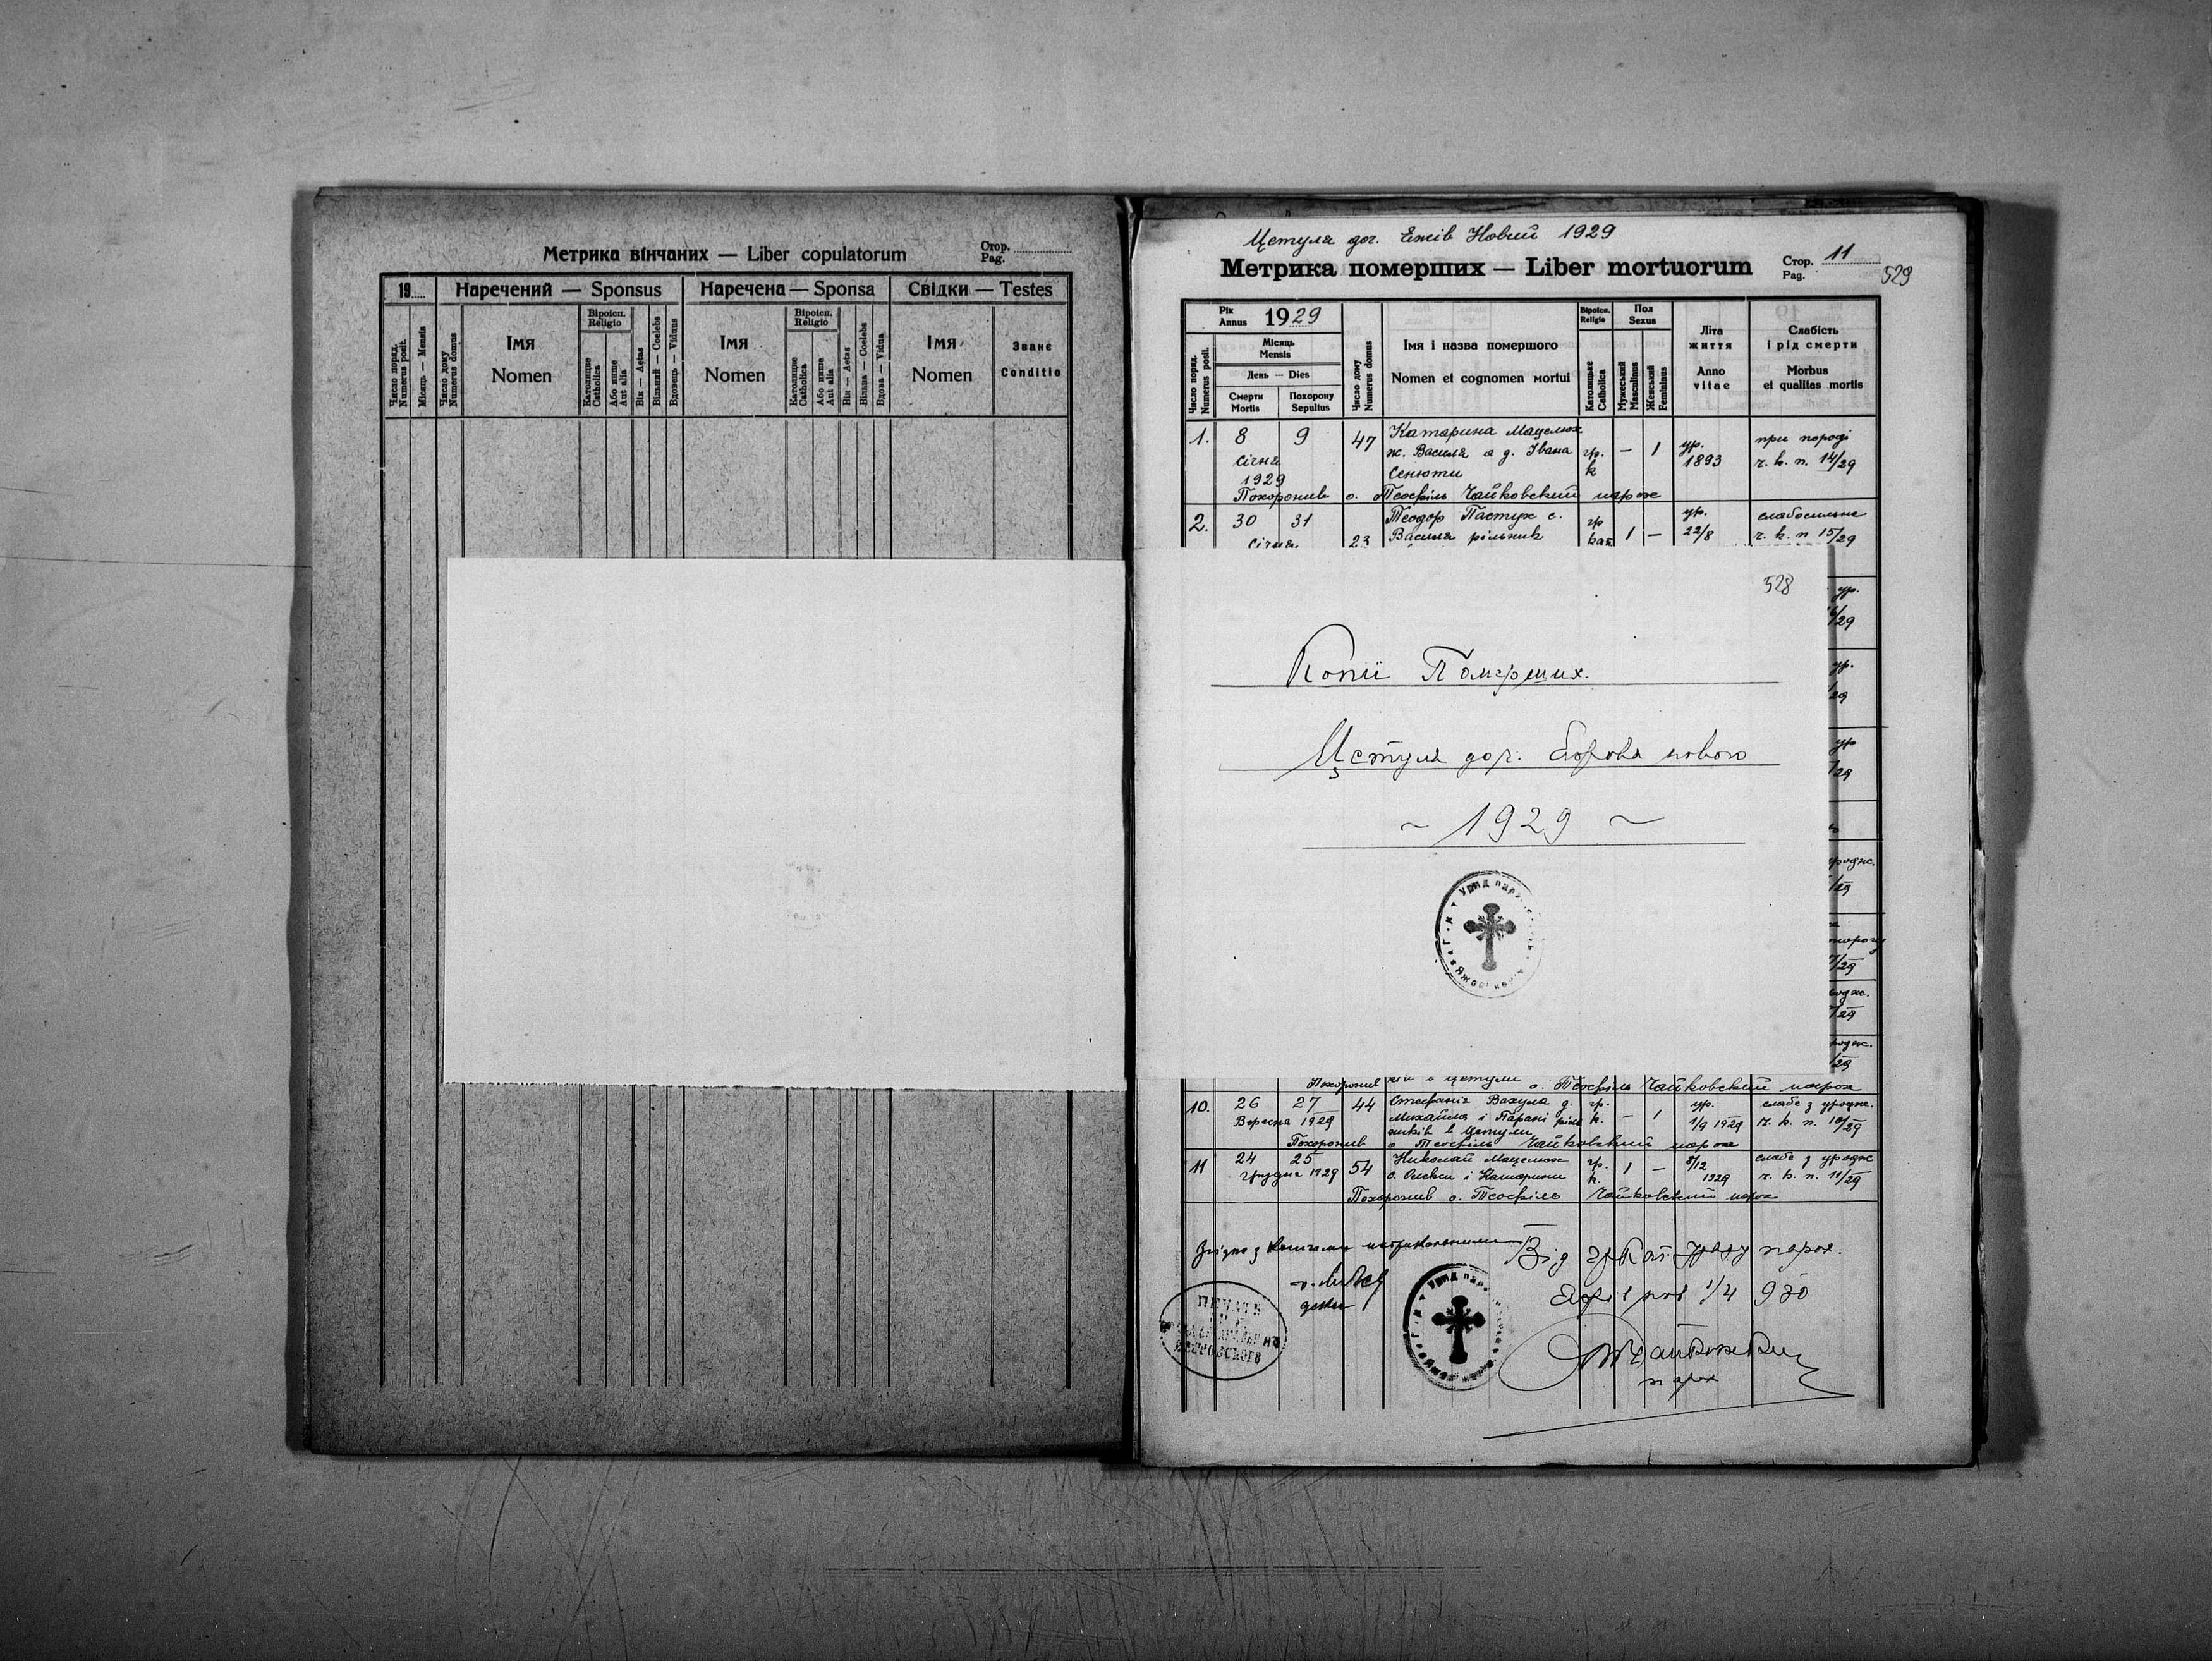 Метрика вінчаних — Liber copulatorum
Стор.
Pag.
19
Наречений — Sponsus
Наречена — Sponsa
Свідки — Testes
Число поряд.
Numerus posit.
Місяць — Mensis
Число дому
Numerus domus
Імя
Nomen
Віроісп.
Religio
Католицке
Catholica
Або инше
Aut alia
Вік — Aetas
Вільний — Coelebs
Вдовець — Viduus
Імя
Nomen
Віроісп.
Religio
Католицке
Catholica
Або инше
Aut alia
Вік — Aetas
Вільна — Coelebs
Вдова — Vidua
Імя
Nomen
Званє
Conditio
Цетуля доч. Яжів Новий 1929
Метрика померших — Liber mortuorum
Стор. 11
Pag.
529
Рік
Annus 1929
Число поряд.
Numerus posit.
Місяць
Mensis
День — Dies
Смерти
Mortis
Похорону
Sepultus
Число дому
Numerus domus
Імя і назва помершого
Nomen et cognomen mortui
Віроісп.
Religio
Католицьке
Catholica
Пол
Sexus
Мужеський
Masculinus
Женський
Femininus
Літа
життя
Anno
vitae
Слабість
і рід смерти
Morbus
et qualitas mortis
1. 8 9 47 Катарина Мацелюх
ж. Василя а д. Івана гр. — 1 ур. при породі
Січня Сенюти к 1893 г. к. п. 14/29
1929
Похоронив о. Теофіль Чайковский парох
2. 30 31 Теодор Пастух с. гр ур. слабосильнє
Січня 23 Василя рільник кат 1 — 22/8 г. к. п 15/29
528
Копії Померших.
Цетуля доч. Яжова нового
~ 1929 ~
Похоронив о. Теофіль Чайковский парох
10. 26 27 44 Стефанія Вахула д. гр. ур. слабе з уродж.
Вересня 1929 Михайла і Парані ріль к. — 1 1/9 1929 г. к. п. 10/29
ників в Цетули
Похоронив о Теофіль Чайковский парох
11 24 25 54 Николай Мацелюх гр. 1 — 8/12 слабе з уродж
Грудня 1929 с. Олекси і Катарини к. 1929 г. к. п. 11/29
Похоронив о. Теофіль Чайковский парох
Згідно з книгами метрикальними
декан
Від гр Кат. Уряду парох.
Яжів нов 1/4 930
Чайковский
парох
ПЕЧАТЬ